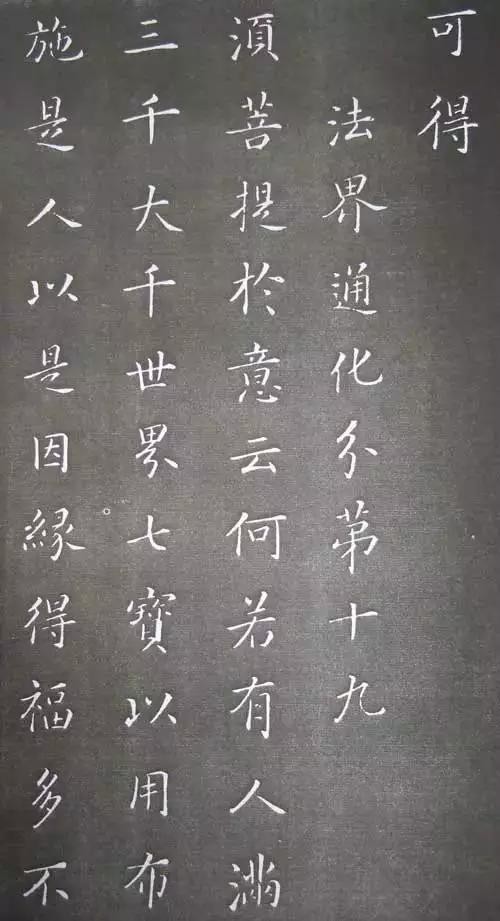 可得
法界通化分第十九
須菩提於意云何若有人滿
三千大千世界七寶以用布
施是人以是因緣得福多不